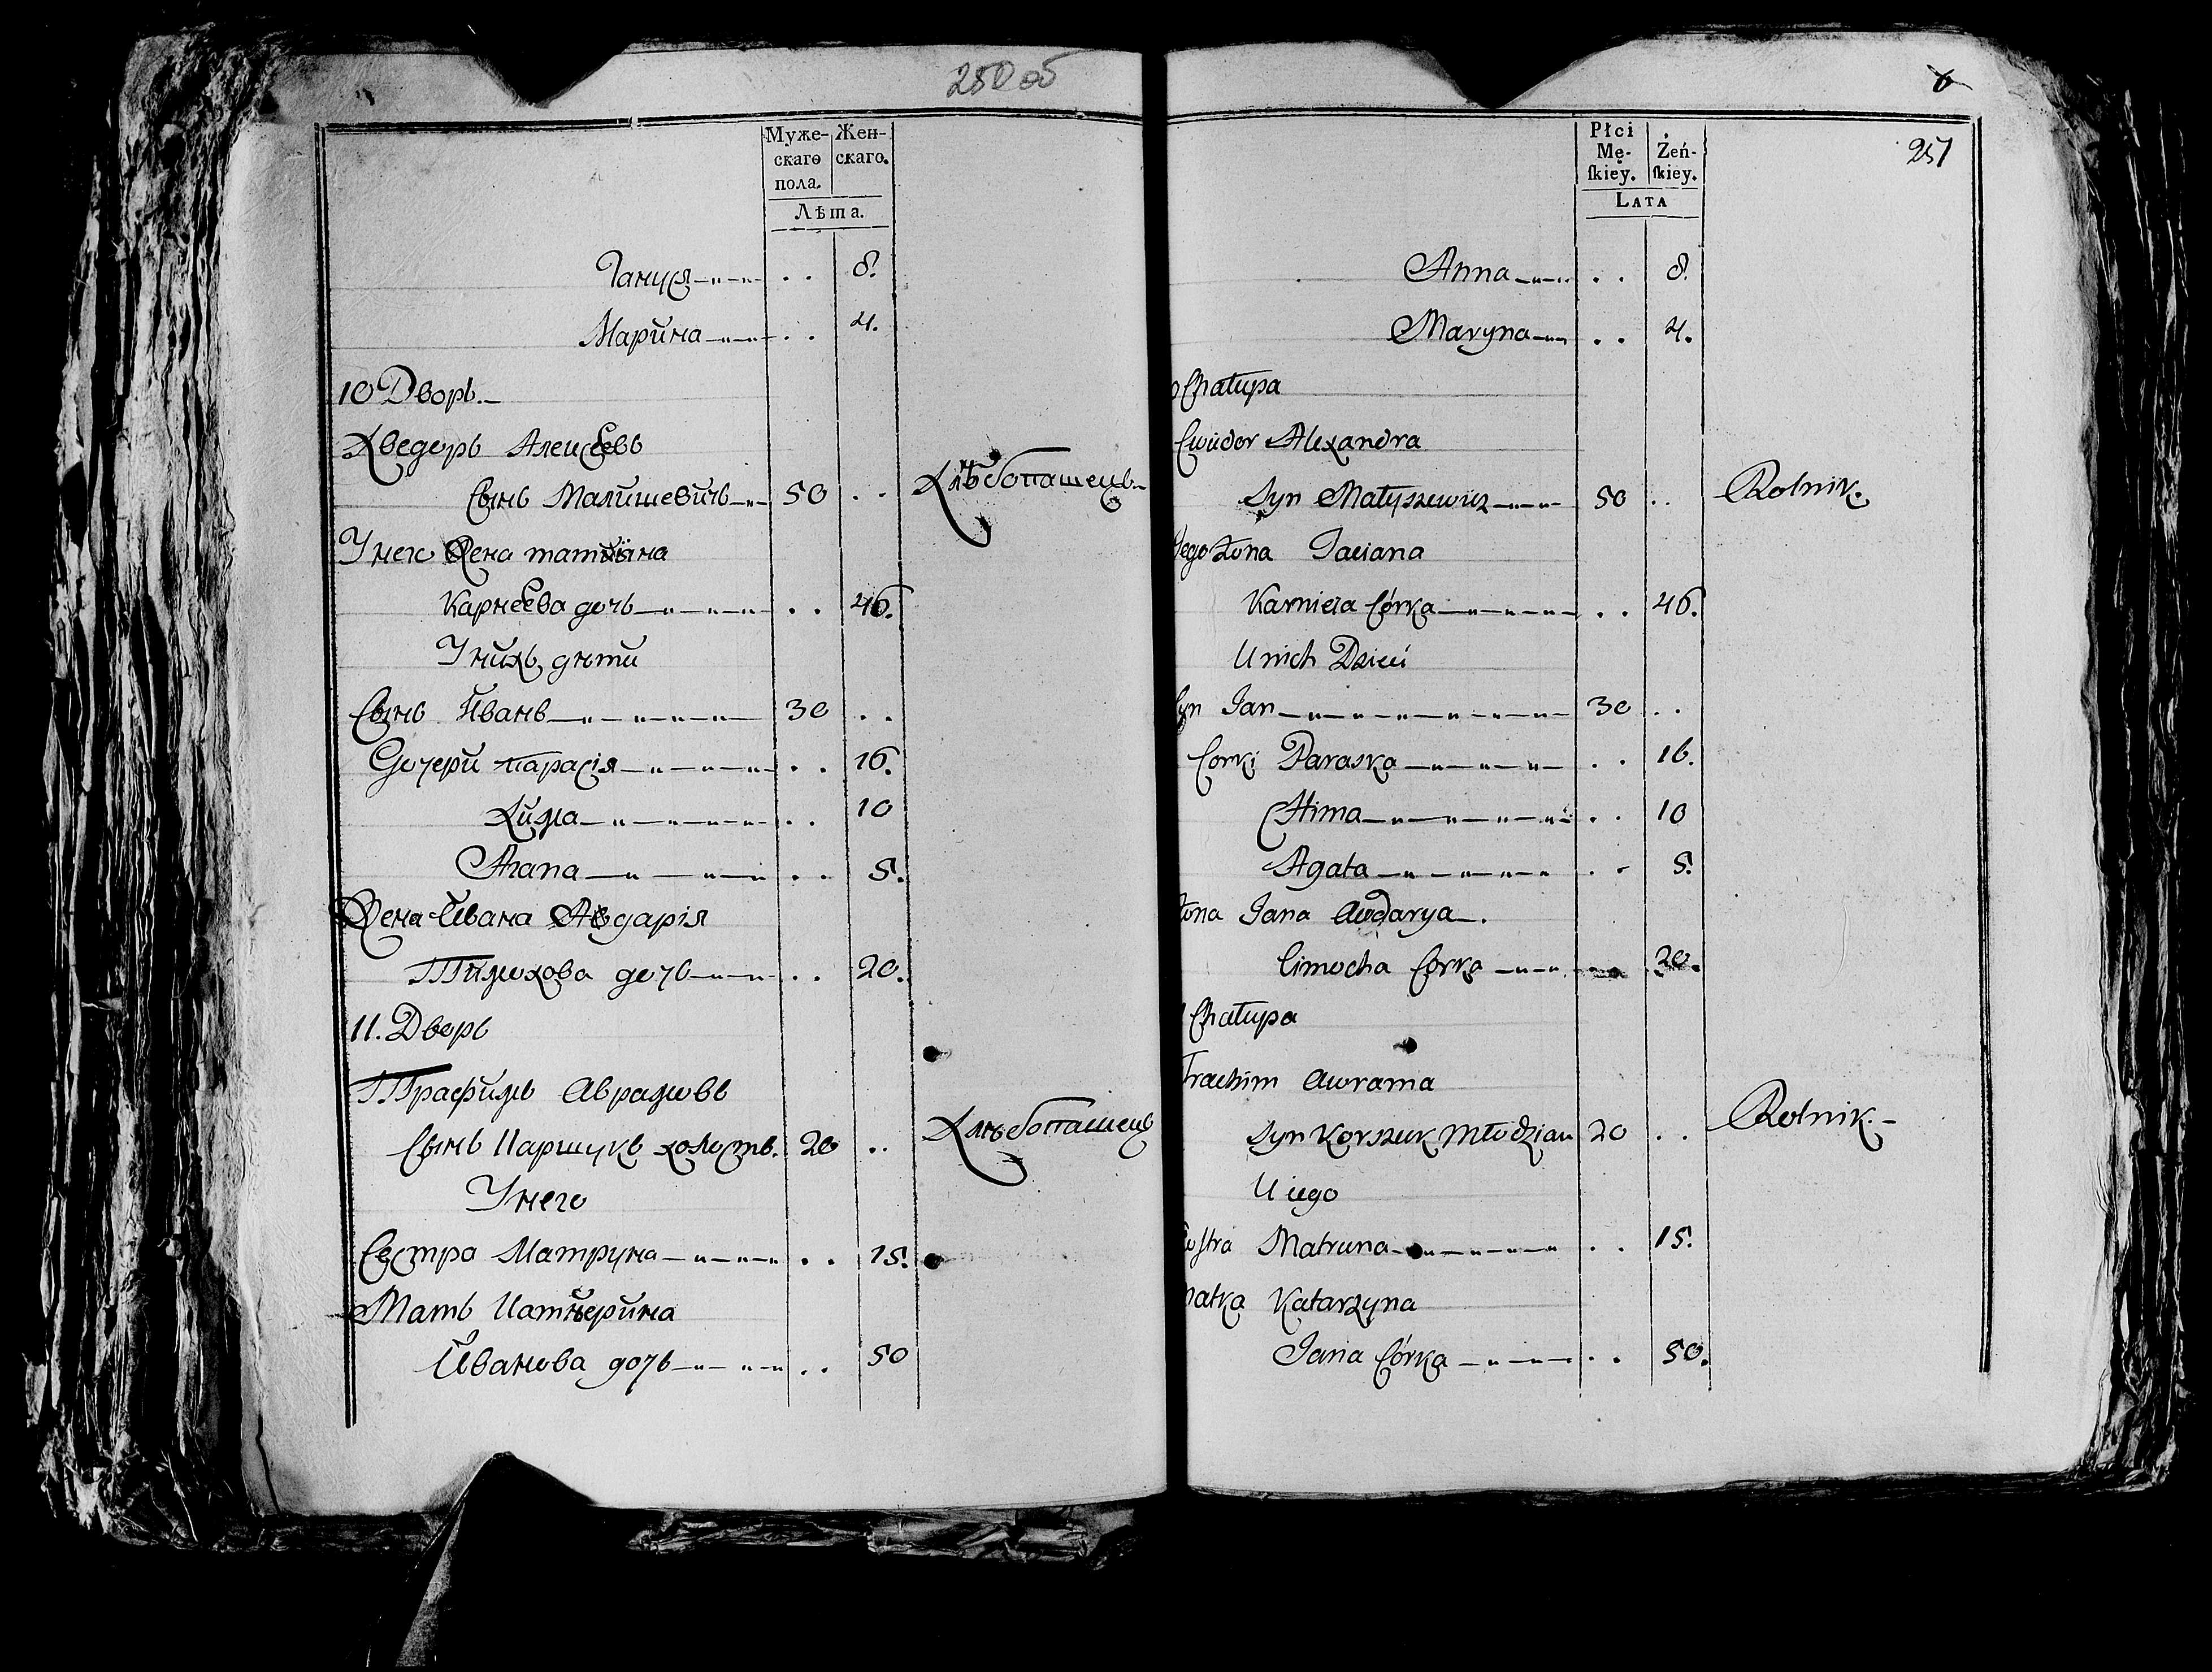 250 об
Муже-
скаго
пола.
Жен-
скаго.
Лѣта.
Гануся 8.
Марина 4.
10 Дворъ.
Хведоръ Алексеевъ
Сынъ Малишевичъ 50 Хлѣбопашецъ
Унего Жена татияна
Карнеева дочь 46.
Унихъ дѣти
Сынъ Иванъ 30
Дочери парасія 16.
Хима 10
Агапа 5.
Жена Ивана Авдарія
Тимохова дочь 20.
11. Дворъ
Трафимъ Аврамовъ
Сынъ Каршукъ холостъ. 20 Хлѣбопашецъ
Унего
Сестра Матруна 15.
Мать Катѣерина
Иванова дочь 50
6
251
Płci
Mę-
ſkiey.
Żeń-
ſkiey.
LATA
Anna 8.
Maryna 4.
Chałupa
Cwiidor Alexandra
Syn Małyszewicz 50 Rolnik.
Jego żona Taciana
Karnieia Córka 46.
Unich Dzieci
Syn Jan 30
Corki Paraska 16.
Hima 10
Agata 5.
żona Jana Awdarya.
Cimocha Corka 20.
Chałupa
Trachim Awrama
Syn Korszuk Młodzian 20 Rolnik.
U iego
Siostra Matruna 15.
Matka Katarzyna
Jana Córka 50.